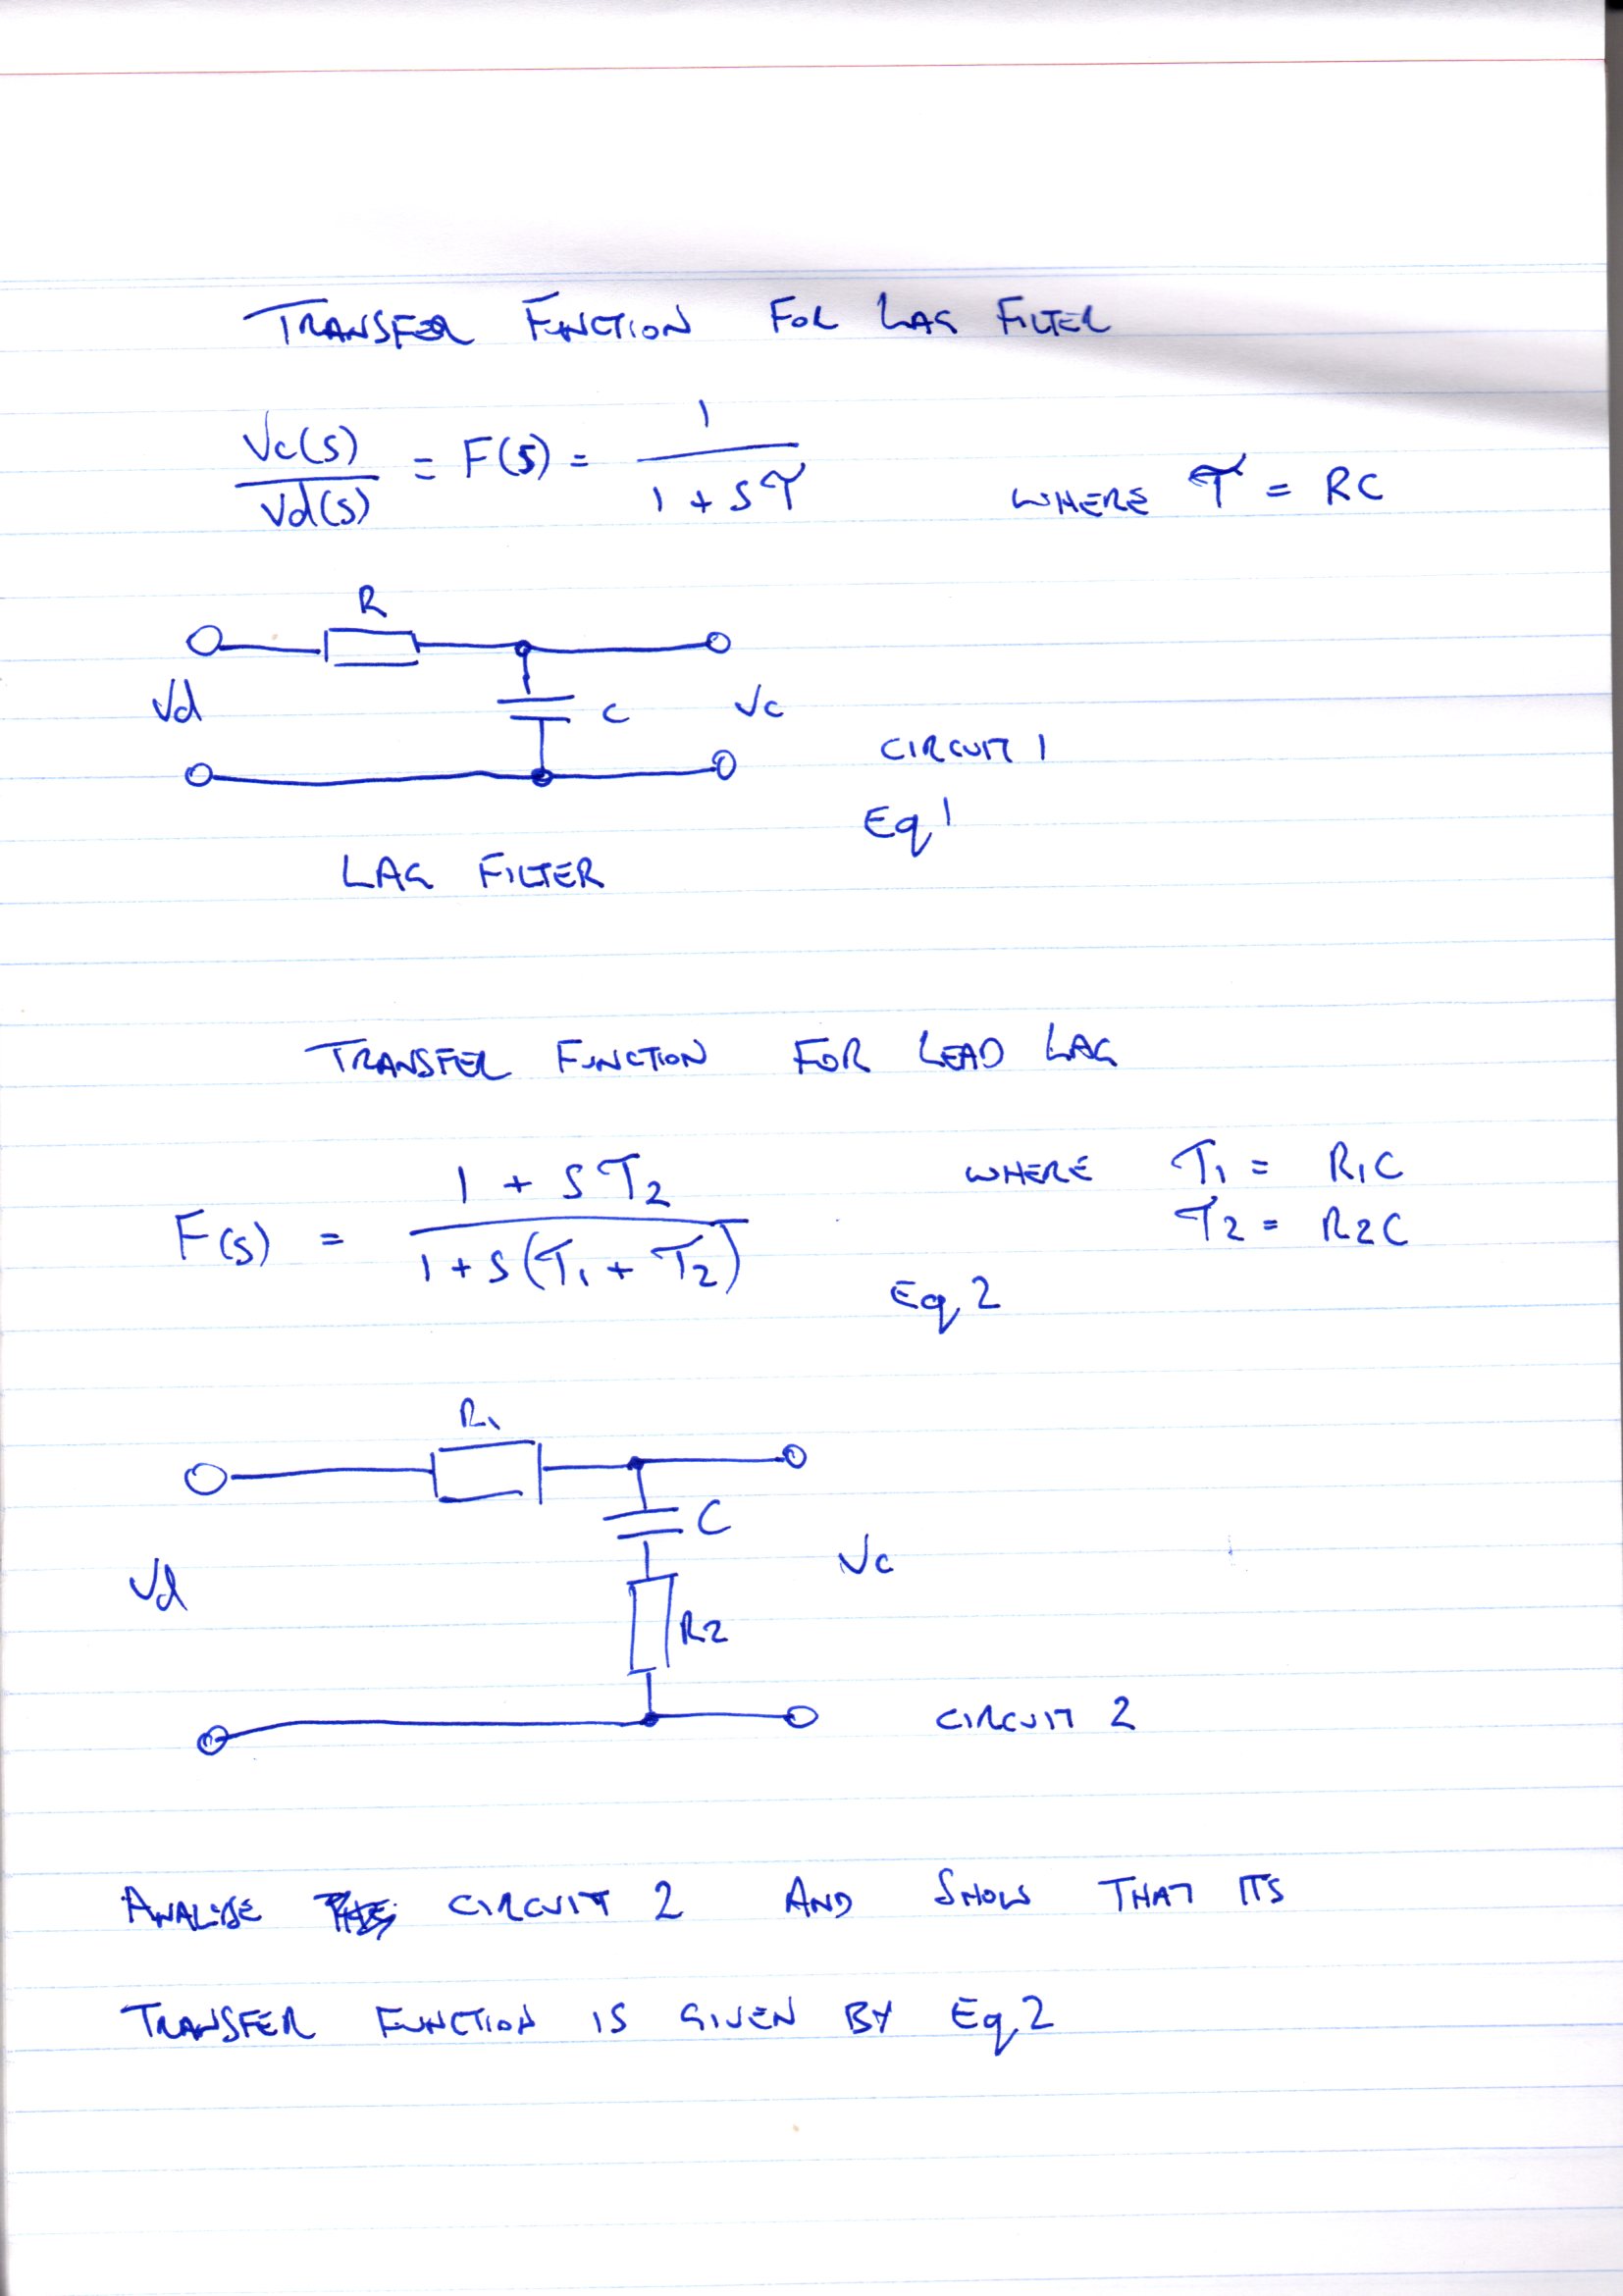 TRANSFER FUNCTION FOR LAG FILTER
Vc(s)/Vd(s) = F(s) = 1/(1 + sτ) WHERE τ = RC
R
Vd C Vc
CIRCUIT 1
Eq 1
LAG FILTER
TRANSFER FUNCTION FOR LEAD LAG
F(s) = (1 + sτ2)/(1 + s(τ1 + τ2)) WHERE τ1 = R1C
τ2 = R2C
Eq 2
R1
C
Vd Vc
R2
CIRCUIT 2
ANALISE CIRCUIT 2 AND SHOW THAT ITS
TRANSFER FUNCTION IS GIVEN BY Eq 2